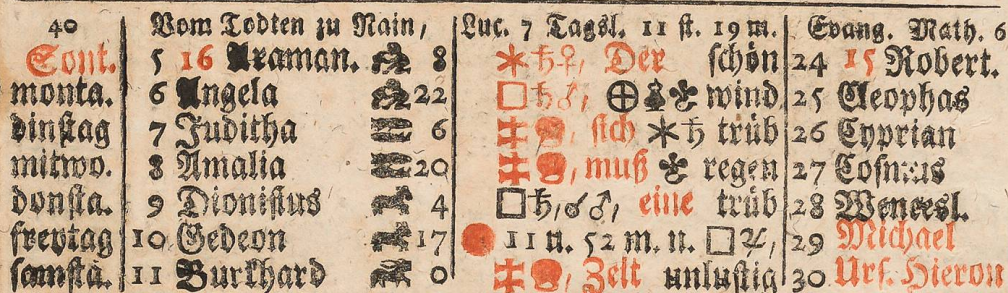 40 Vom Todten zu Nain, Luc. 7 Tagsl. 11 st. 19 m. Evang. Math. 6
Sont. 5 16 Araman. 8 ✶♄♀, Der schön 24 15 Robert.
monta. 6 Angela 22 □♄♂, ⊕ wind 25 Cleophas
dinstag 7 Juditha 6 sich ✶♄ trüb 26 Cyprian
mitwo. 8 Amalia 20 muß regen 27 Cosmus
donsta. 9 Dionisius 4 □♄,☌♂, eine trüb 28 Wencesl.
freytag 10 Gedeon 17 11 u. 52 m. n. □♃, 29 Michael
samsta. 11 Burkhard 0 Zeit unlustig 30 Urs. Hieron